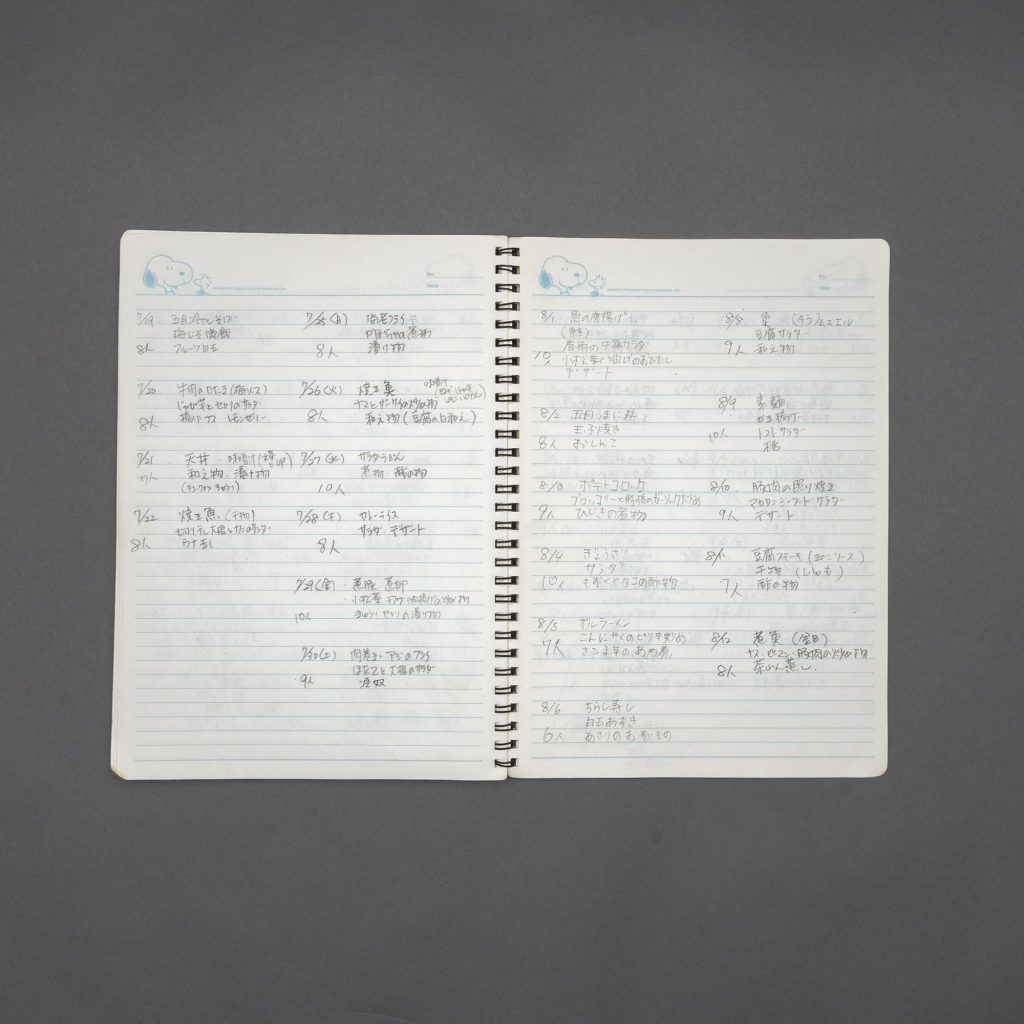 No.
Date
7/19 五目冷やしそば
梅しそ御飯
8人 フルーツ白玉
7/20 牛肉のたたき(梅ソース)
じゃが芋とセロリのサラダ
8人 レモンゼリー
7/21 天丼・味噌汁
7人 和え物・漬け物
7/22 焼き魚(干物)
切り干し大根とツナのサラダ
8人
7/25(月) 海老フライ
かぼちゃの煮物
8人 漬け物
7/26(火) 焼き魚
味噌汁
8人 和え物(豆腐の白和え)
7/27(水) サラダうどん
煮物・酢の物
10人
7/28(木) カレーライス
サラダ・デザート
8人
7/29(金)・煮豚 煮卵
・小松菜
10人 きゅうり セロリの漬け物
7/30(土) 肉巻き・アジのフライ
ほたてと大根のサラダ
9人 冷奴
No.
Date
8/1 魚の唐揚げ
春雨の中華サラダ
10人 小松菜と油揚げのおひたし
デザート
8/2 五目うま煮
玉子焼き
8人 おしんこ
8/3 ポテトコロッケ
ブロッコリーと豚肉のガーリック炒め
9人 ひじきの煮物
8/4 ぎょうざ
サラダ
10人 もずくとタコの酢物
8/5 サルラーメン
こんにゃくのピリ辛炒め
7人 さつま芋のあめ煮
8/6 ちらし寿し
白玉あずき
6人 あさりのお吸いもの
8/8 魚(タラ)ムニエル
豆腐サラダ
9人 和え物
8/9 素麺
かき揚げ
10人 トマトサラダ
桃
8/10 豚肉の照り焼き
マカロニシーフードサラダ
9人 デザート
8/11 豆腐ステーキ(きのこソース)
干物(ししゃも)
7人 酢の物
8/12 煮魚(金目)
ナス・ピーマン・豚肉の炒め物
8人 茶わん蒸し